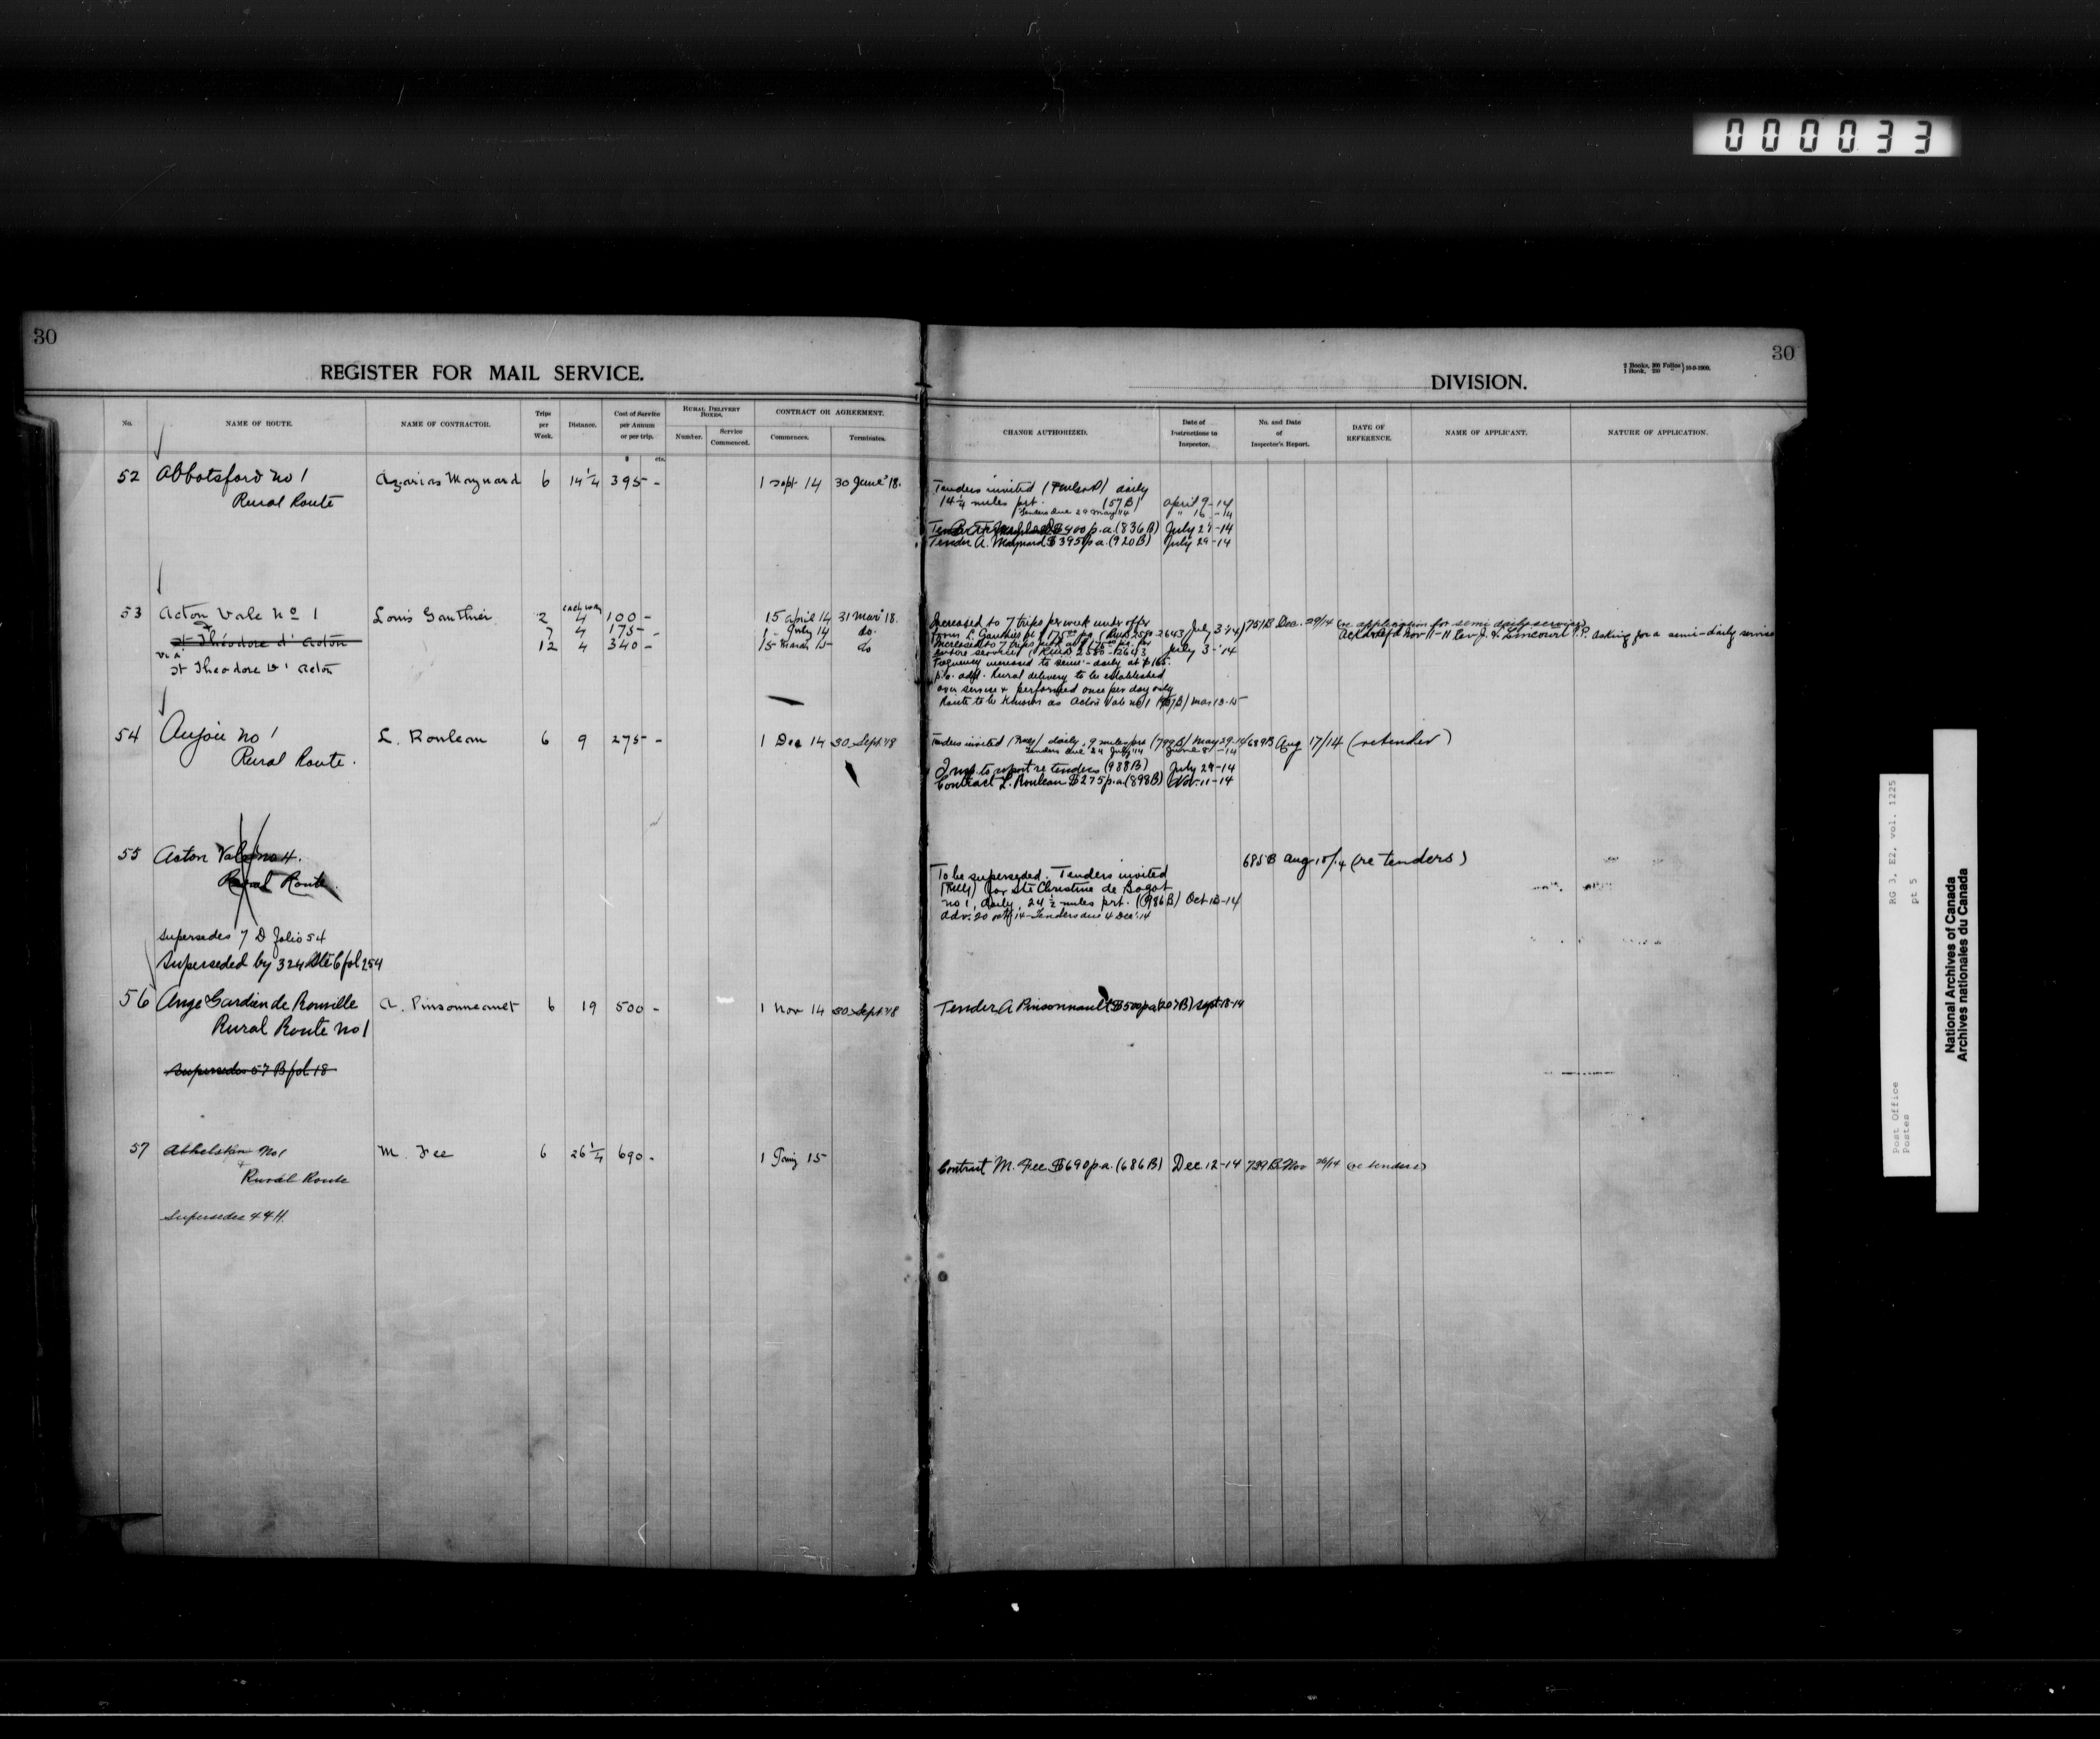 000033
30
REGISTER FOR MAIL SERVICE.
No.
NAME OF ROUTE.
NAME OF CONTRACTOR.
Trips per Week.
Distance.
Cost of Service per Annum or per trip.
RURAL DELIVERY BOXES.
Number.
Service Commenced.
CONTRACT OR AGREEMENT.
Commences.
Terminates.
$ cts.
52 Abbotsford no 1 Azarias Maynard 6 14 1/4 395 - 1 Sept 14 30 June '18.
Rural Route
53 Acton Vale No 1 Louis Gauthier 2 each way 4 100 - 15 April 14 31 Mar' 18.
& 7 4 175 - 1 - July 14 do.
St Théodore d'Acton 12 4 340 - 15 March 15 do
via
St Theodore D'Acton
54 Anjou no 1 L. Rouleau 6 9 275 - 1 Dec 14 30 Sept '18
Rural Route.
55 Acton Vale no 4.
Rural Route.
Supersedes 7 D folio 54
Superseded by 324 fol 254
56 Ange Gardien de Rouville A. Pinsonneault 6 19 500 - 1 Nov 14 30 Sept '18
Rural Route no 1
Supersedes 57 B fol 18
57 Athelstan No 1 M. Fee 6 26 1/4 690 - 1 Jany 15
Rural Route
Supersedes 44 H.
30
DIVISION.
2 Books, 300 Folios
1 Book, 250 " } 10-9-1909.
CHANGE AUTHORIZED.
Date of Instructions to Inspector.
No. and Date of Inspector's Report.
DATE OF REFERENCE.
NAME OF APPLICANT.
NATURE OF APPLICATION.
Tenders invited daily
14 1/4 miles prt. (57 B) April 9-14
Tenders due 29 May '14 " 16 -14
Tender $400 p.a. (836 B) July 21-14
Tender A. Maynard $395 p.a. (920 B) July 29-14
Increased to 7 trips per week under offer
from L. Gauthier at $175.00 pa 2643 July 3-'14 1751 B Dec. 29/14 (re application for semi daily service)
Nov-11-11 Rev J. Lincourt P.P. asking for a semi-daily service
Increased to 7 trips
entire service July 3-'14
Frequency increased to semi-daily at $165.
p.a. addl. Rural delivery to be established
over service & performed once per day only
Route to be known as Acton Vale no 1 Mar 13-15
Tenders invited daily, 9 miles prt (799 B) May 29-14 689 B Aug 17/14 (re tender)
Tenders due 24 July '14 June 8 -14
Insp. to report re tenders (988 B) July 29-14
Contract L. Rouleau $275 p.a. (898 B) Nov. 11-14
685 B Aug 15/14 (re tenders)
To be superseded. Tenders invited
for Ste Christine de Bagot
no 1, daily, 24 1/2 miles prt. (986 B) Oct 13-14
Adv. 20 Oct 14 - Tenders due 4 Dec. 14
Tender A Pinsonnault $500 pa (207 B) Sept. 18-14
Contract M. Fee $690 p.a. (686 B) Dec. 12-14 739 B Nov 26/14 (re tenders)
Post Office
Postes
RG 3, E2, vol. 1225
pt 5
National Archives of Canada
Archives nationales du Canada